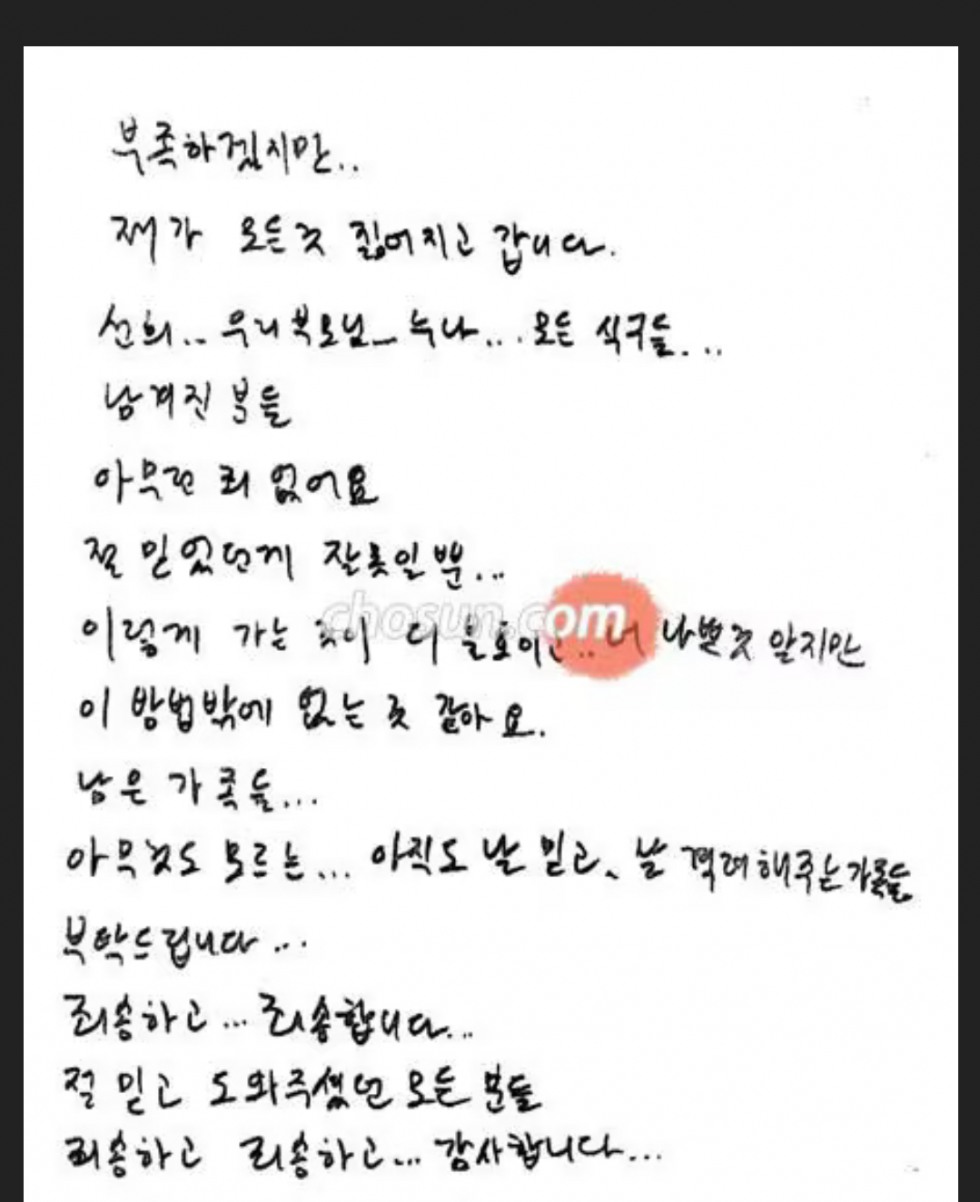 부족하겠지만..
제가 모든것 짊어지고 갑니다.
선희... 우리부모님... 누나... 모든 식구들...
남겨진 분들
아무런 죄 없어요
절 믿었던게 잘못일뿐...
이렇게 가는 것이 더 불효이고.. 더 나쁜것 알지만
chosun.com
이 방법밖에 없는 것 같아요.
남은 가족들...
아무것도 모르는... 아직도 날 믿고, 날 격려해주는 가족들
부탁드립니다...
죄송하고... 죄송합니다...
절 믿고 도와주셨던 모든 분들
죄송하고 죄송하고... 감사합니다...